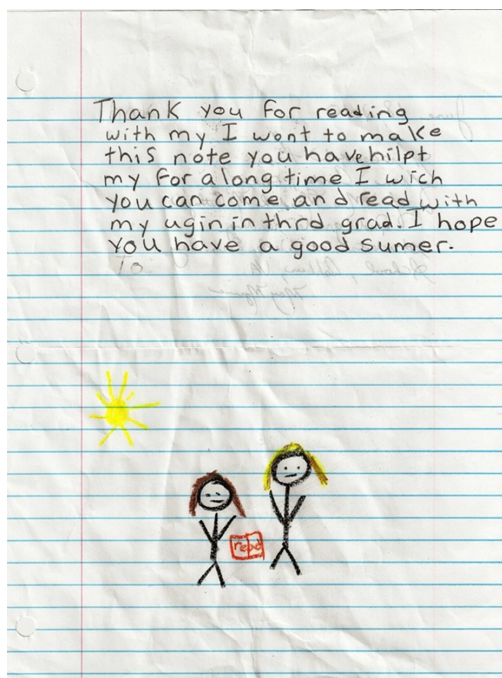 Thank you for reading
with my I wont to make
this note you have hilpt
my for a long time I wich
you can come and read with
my ugin in thrd grad. I hope
you have a good sumer.
To
read